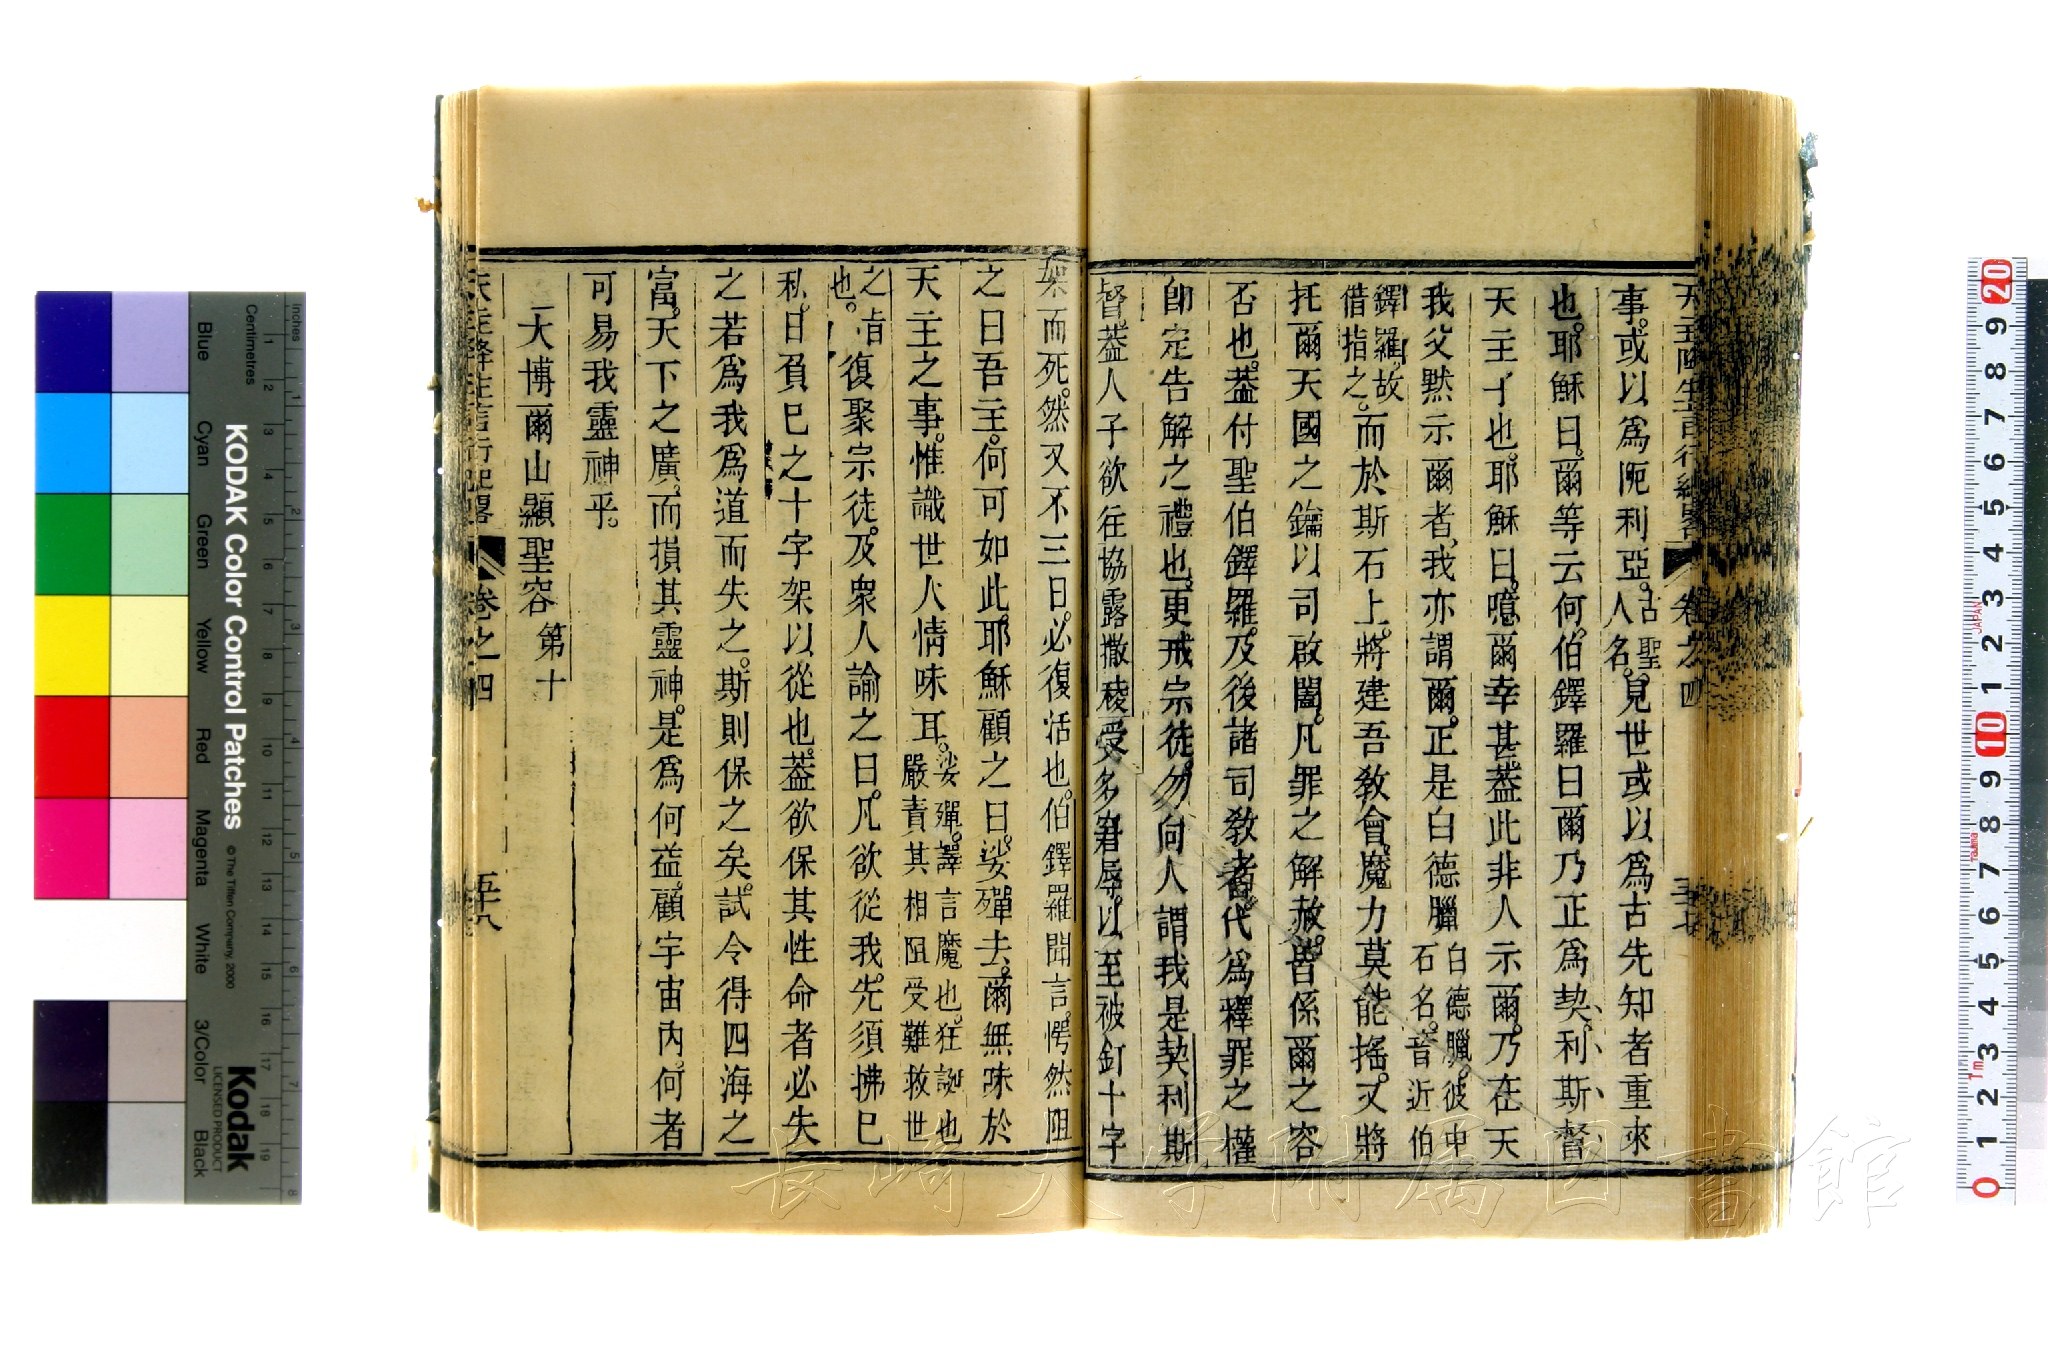 天主降生言行紀畧 卷之四
事。或以爲阨利亞。古聖人名。見世或以爲古先知者重來
也。耶穌曰。爾等云何。伯鐸羅曰爾乃正爲契利斯督
天主子也。耶穌曰。噫爾幸甚。葢此非人示爾。乃在天
我父黙示爾者。我亦謂爾。正是白德臘白德臘。彼中石名。音近伯
鐸羅。故借指之。而於斯石上。將建吾教會。魔力莫能搖。又將
托爾天國之鑰以司啟闔。凡罪之解赦。皆係爾之容
否也。葢付聖伯鐸羅。及後諸司教者。代爲釋罪之權
卽定告解之禮也。更戒宗徒。勿向人謂我是契利斯
督。葢人子欲徃協露撒稜受多窘辱。以至被釘十字
架而死。然又不三日。必復活也。伯鐸羅聞言。愕然阻
之曰吾主。何可如此。耶穌顧之曰。娑殫去。爾無味於
天主之事。惟識世人情味耳。娑殫。譯言魔也。狂誕也嚴責其相阻受難救世
之旨也。復聚宗徒。及衆人諭之曰。凡欲從我。先須拂已
私。日負已之十字架以從也。葢欲保其性命者必失
之若爲我爲道而失之。斯則保之矣。試令得四海之
富。天下之廣。而損其靈神。是爲何益。顧宇宙內。何者
可易我靈神乎。
大博爾山顯聖容 第十
天主降生言行紀畧 卷之四 五十八
長崎大学附属図書館
KODAK Color Control Patches
© The Tiffen Company, 2000
Kodak
LICENSED PRODUCT
Centimetres
Inches
Blue
Cyan
Green
Yellow
Red
Magenta
White
3/Color
Black